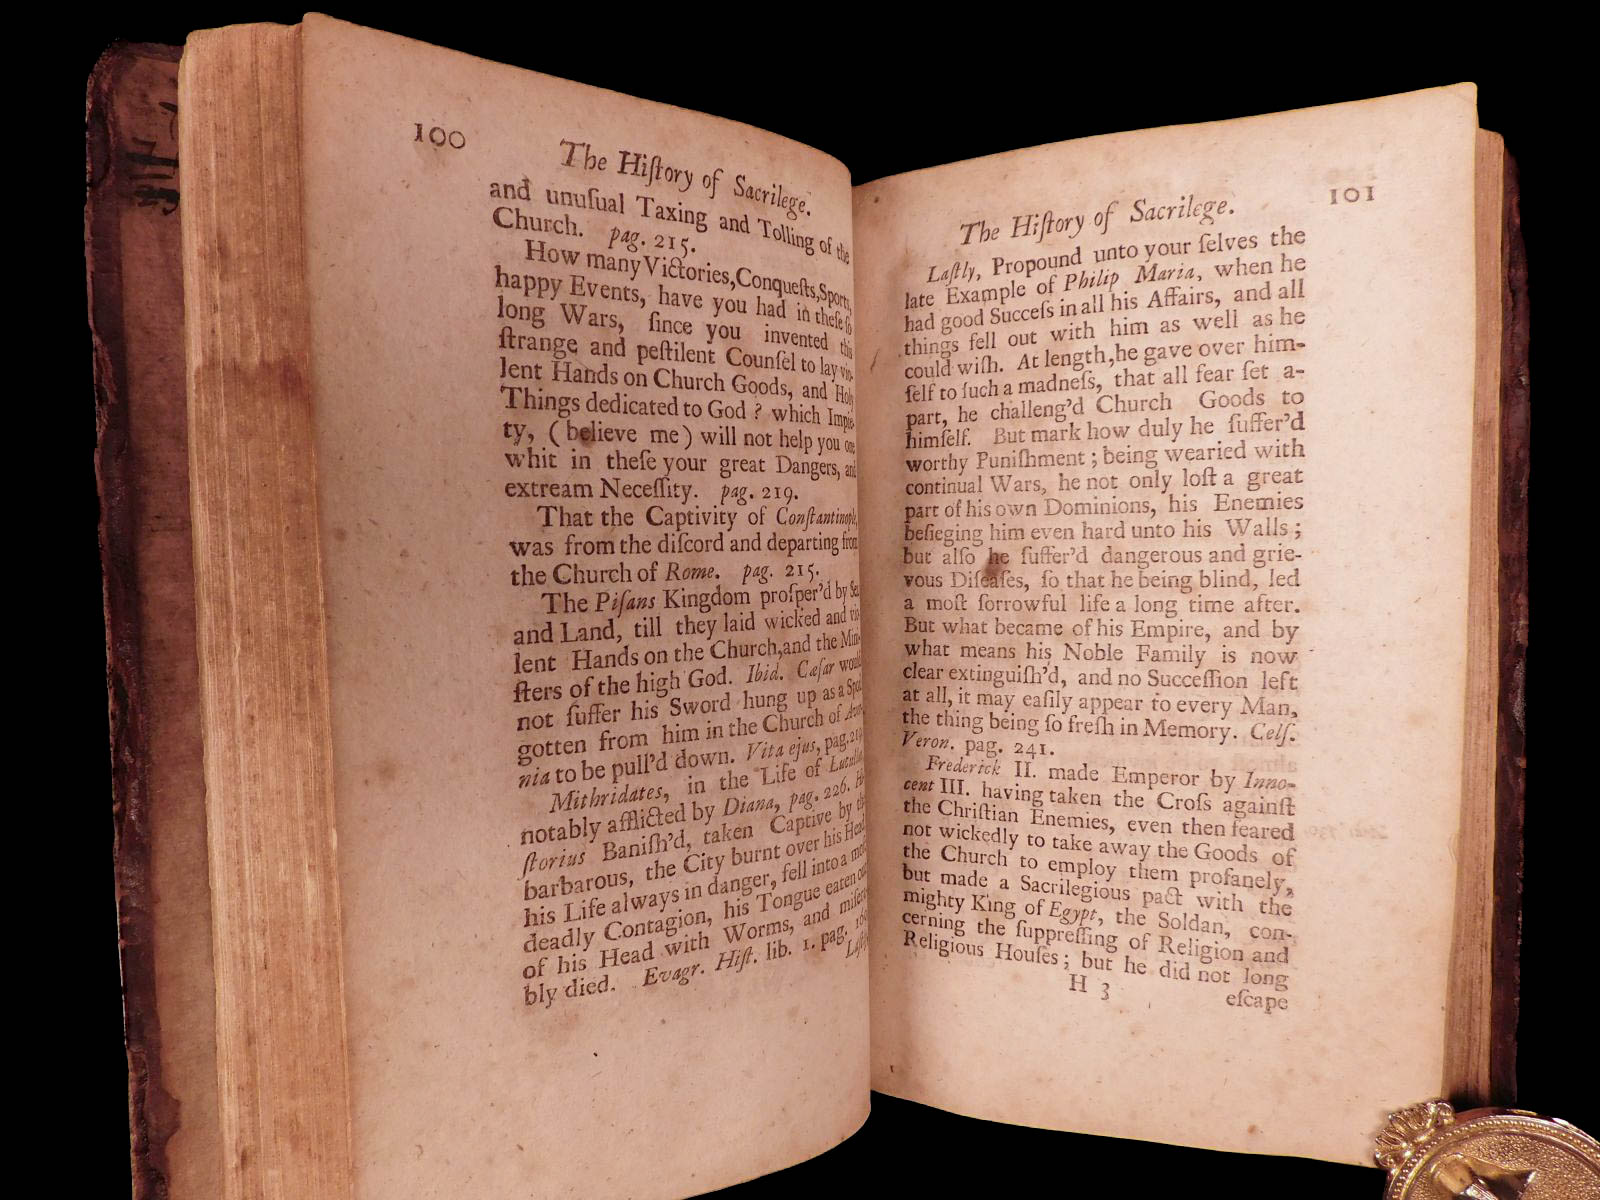 100
The Hiſtory of Sacrilege.
and unuſual Taxing and Tolling of the
Church. pag. 215.
How many Victories, Conqueſts,
happy Events, have you had in theſe ſo
long Wars, ſince you invented this
ſtrange and peſtilent Counſel to lay vio-
lent Hands on Church Goods, and Holy
Things dedicated to God ? which Impie-
ty, ( believe me ) will not help you one
whit in theſe your great Dangers, and
extream Neceſſity. pag. 219.
That the Captivity of Conſtantinople,
was from the diſcord and departing from
the Church of Rome. pag. 215.
The Piſans Kingdom proſper'd by Sea
and Land, till they laid wicked and vio-
lent Hands on the Church, and the Mini-
ſters of the high God. Ibid. Cæſar would
not ſuffer his Sword hung up as a Spoil
gotten from him in the Church of
nia to be pull'd down. Vita ejus, pag. 219.
Mithridates, in the Life of Lucullus,
notably afflicted by Diana, pag. 226.
ſtorius Baniſh'd, taken Captive by the
barbarous, the City burnt over his Head,
his Life always in danger, fell into a moſt
deadly Contagion, his Tongue eaten out
of his Head with Worms, and miſera-
bly died. Evagr. Hiſt. lib. 1. pag.
Laſtly,
101
The Hiſtory of Sacrilege.
Laſtly, Propound unto your ſelves the
late Example of Philip Maria, when he
had good Succeſs in all his Affairs, and all
things fell out with him as well as he
could wiſh. At length, he gave over him-
ſelf to ſuch a madneſs, that all fear ſet a-
part, he challeng'd Church Goods to
himſelf. But mark how duly he ſuffer'd
worthy Puniſhment ; being wearied with
continual Wars, he not only loſt a great
part of his own Dominions, his Enemies
beſieging him even hard unto his Walls ;
but alſo he ſuffer'd dangerous and grie-
vous Diſeaſes, ſo that he being blind, led
a moſt ſorrowful life a long time after.
But what became of his Empire, and by
what means his Noble Family is now
clear extinguiſh'd, and no Succeſſion left
at all, it may eaſily appear to every Man,
the thing being ſo freſh in Memory. Celſ.
Veron. pag. 241.
Frederick II. made Emperor by Inno-
cent III. having taken the Croſs againſt
the Chriſtian Enemies, even then feared
not wickedly to take away the Goods of
the Church to employ them profanely,
but made a Sacrilegious pact with the
mighty King of Egypt, the Soldan, con-
cerning the ſuppreſſing of Religion and
Religious Houſes ; but he did not long
H 3
eſcape